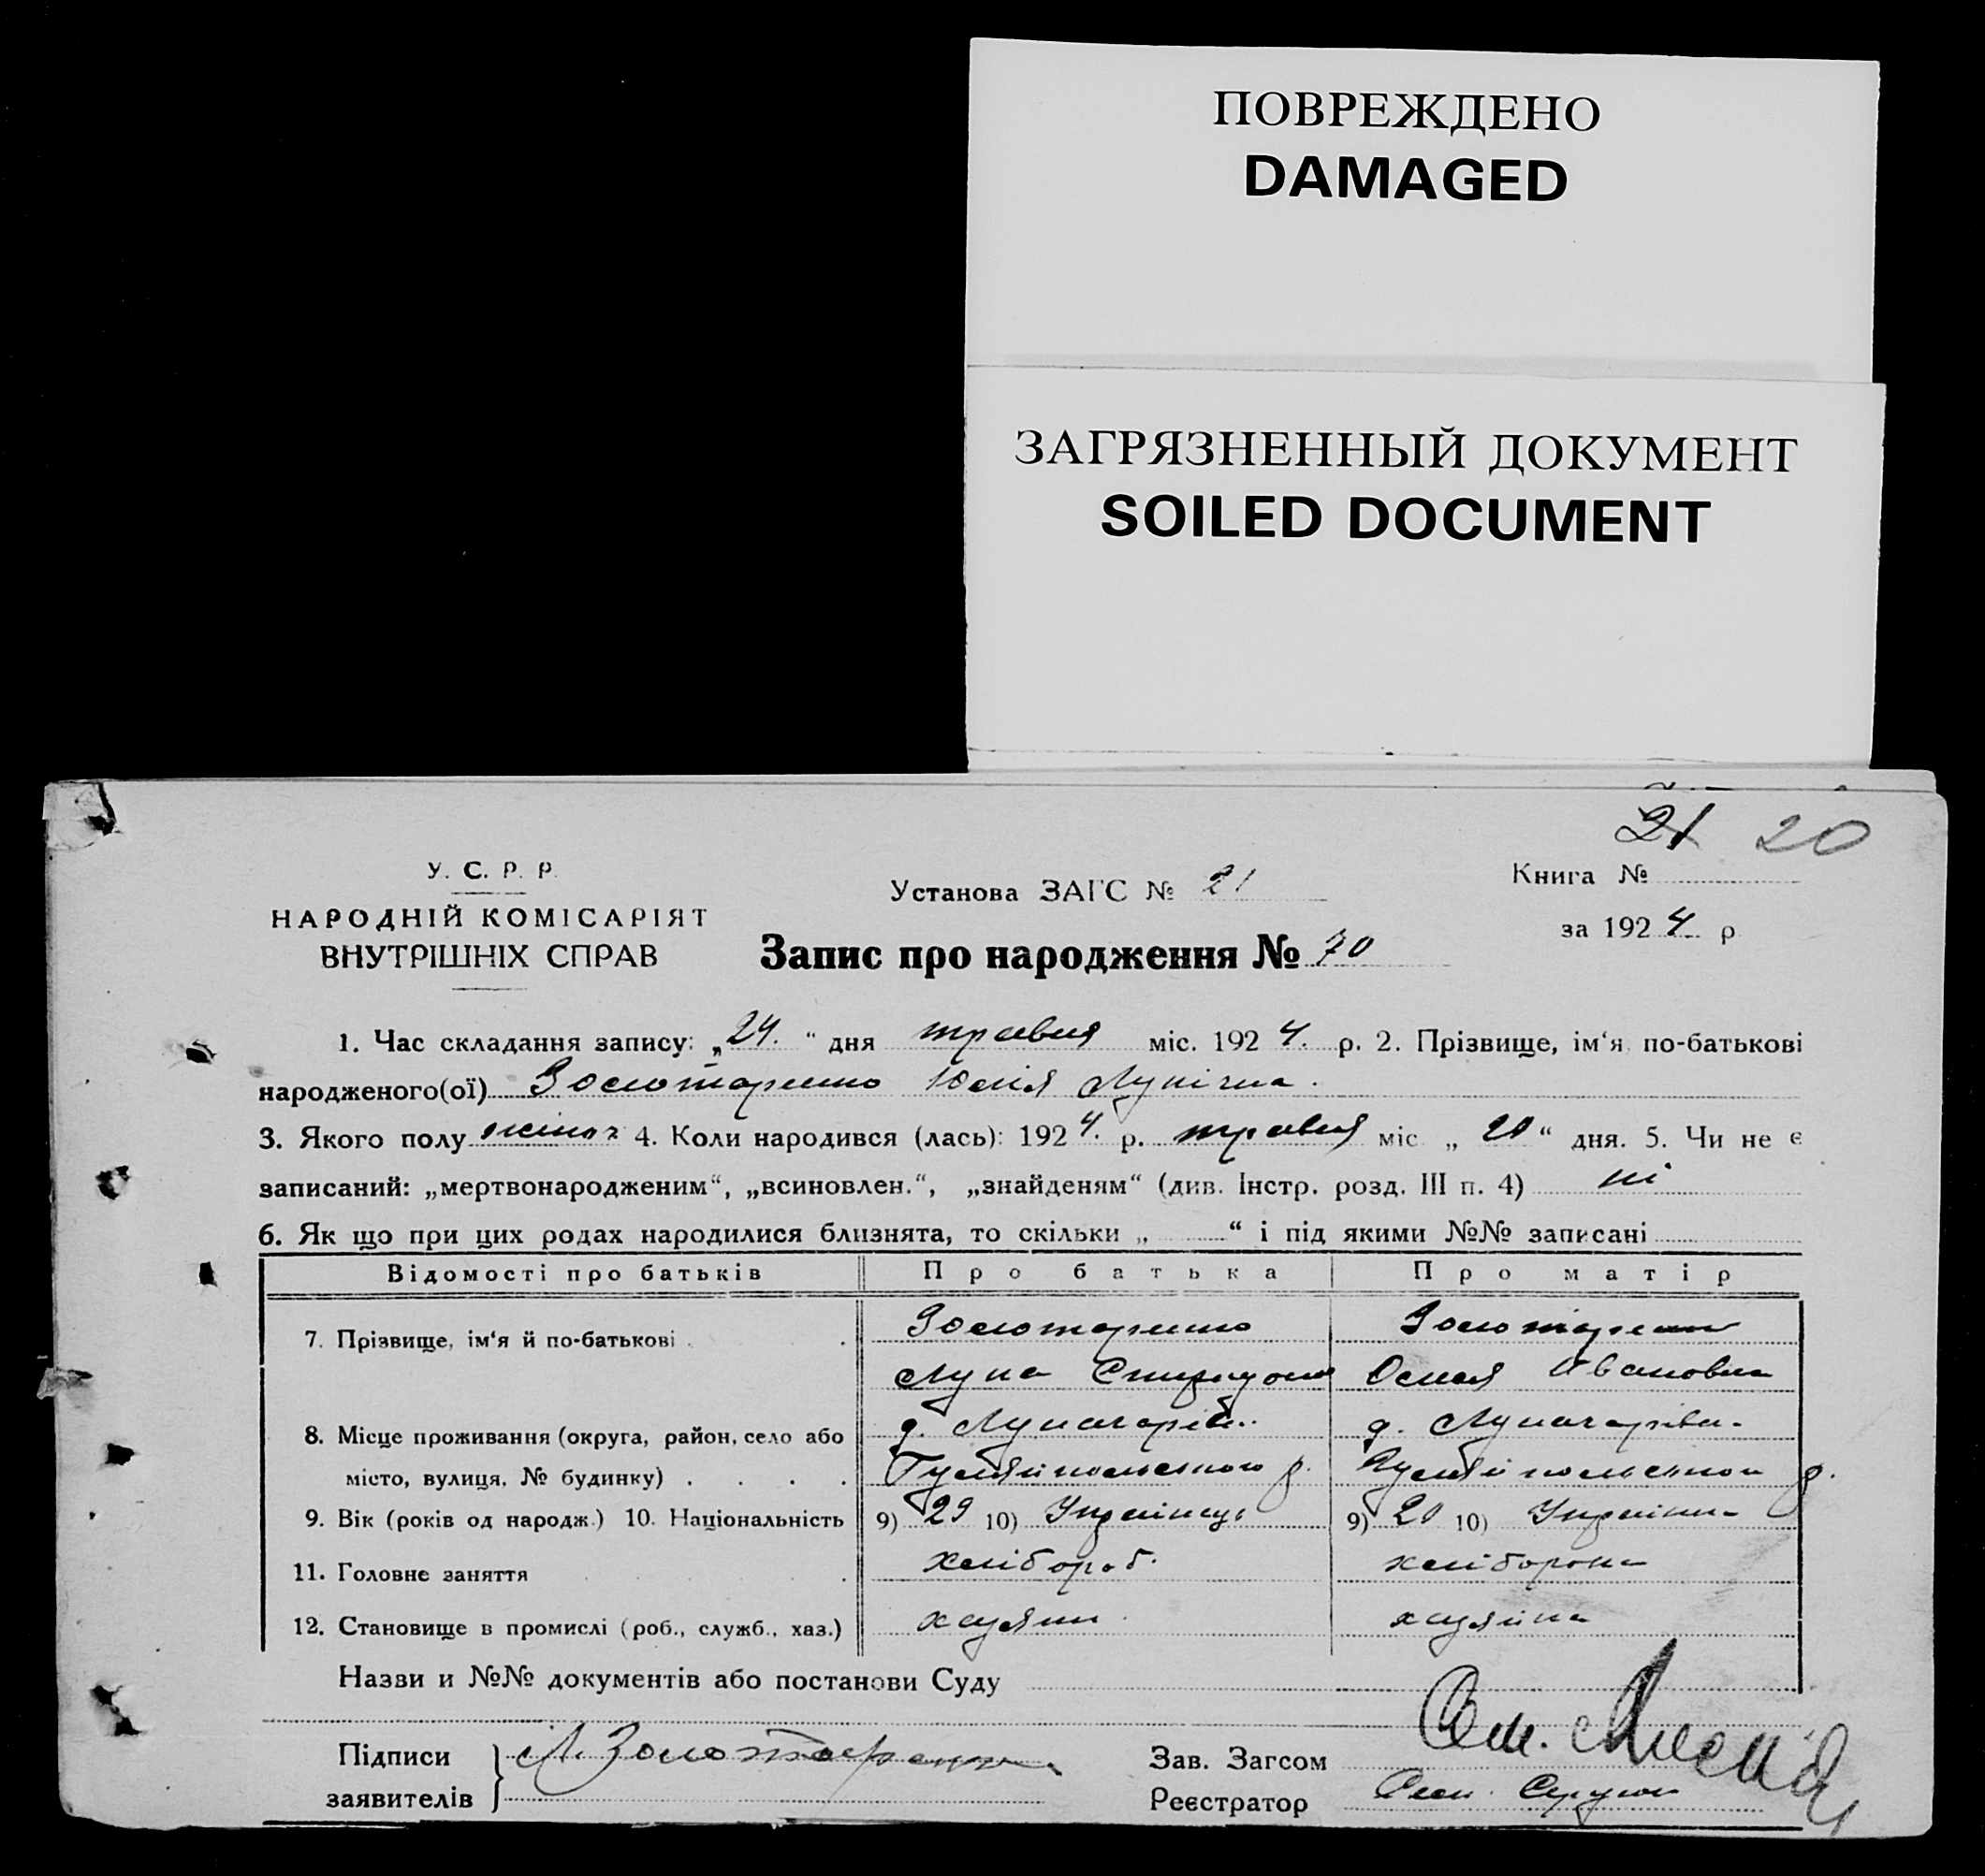 ПОВРЕЖДЕНО
DAMAGED
ЗАГРЯЗНЕННЫЙ ДОКУМЕНТ
SOILED DOCUMENT
21 20
У. С. Р. Р.
НАРОДНІЙ КОМІСАРІЯТ
ВНУТРІШНІХ СПРАВ
Установа ЗАГС № 21
Книга №
за 1924 р
Запис про народження № 70
1. Час складання запису: „24.“ дня травня міс. 1924. р. 2. Прізвище, ім‘я по-батькові
народженого(ої) Золотаренко Юлія Лупічна.
3. Якого полу жіноч 4. Коли народився (лась): 1924. р. травня міс „20“ дня. 5. Чи не є
записаний: „мертвонародженим“, „всиновлен.“, „знайденям“ (див. Інстр. розд. III п. 4) ні
6. Як що при цих родах народилися близнята, то скільки „ “ і під якими №№ записані
Відомості про батьків Про батька Про матір
7. Прізвище, ім‘я й по-батькові Золотаренко Золотаренко
Лупа Спиридонов Ивановна
8. Місце проживання (округа, район, село або д. Луначарів.. д. Луначарівка
місто, вулиця, № будинку) Гуляйпольського р. Гуляйпольського р.
9. Вік (років од народж.) 10. Національність 9) 29 10) Українець 9) 20 10) Українка
11. Головне заняття хлібороб. хлібороба
12. Становище в промислі (роб., служб., хаз.) хазяин хазяйка
Назви и №№ документів або постанови Суду
Підписи Л. Золотаренко Зав. Загсом
заявителів Реєстратор